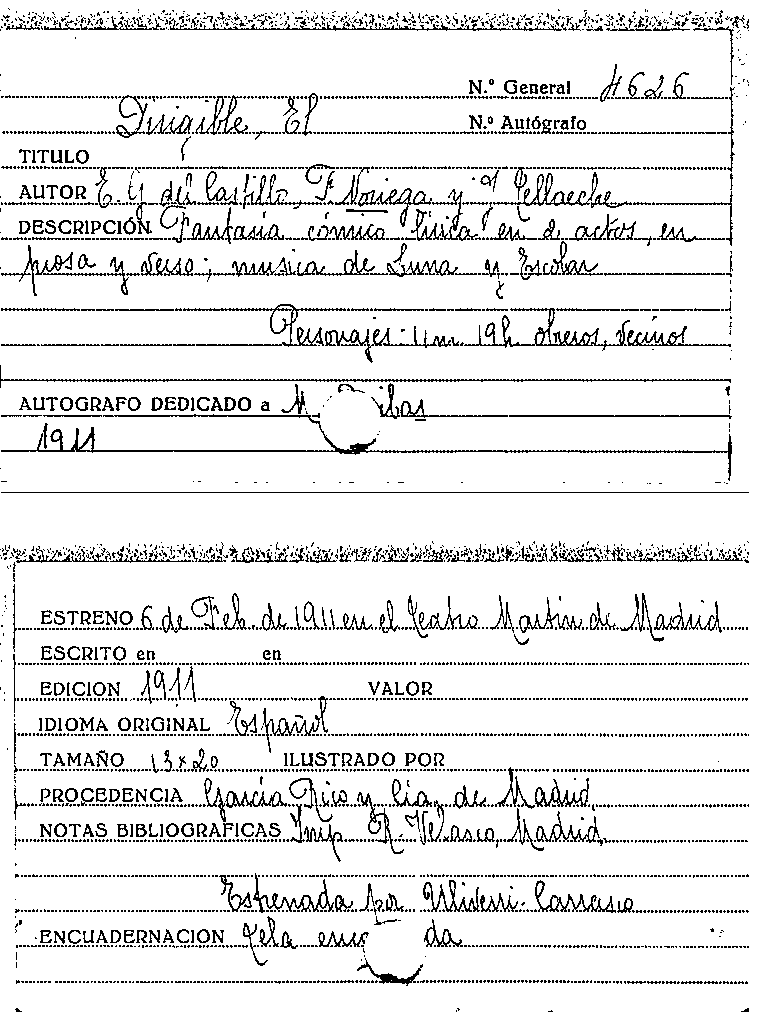 N.º General 4626
Dirigible, El
N.º Autógrafo
TITULO
AUTOR E. G. del Castillo, F. Noriega y J. Pellaeche
DESCRIPCIÓN Fantasía cómico lírica en 2 actos, en
prosa y verso; musica de Luna y Escobar
Personajes: 11 m. 19 h. obreros, vecinos
AUTOGRAFO DEDICADO a
1911
ESTRENO 6 de Feb. de 1911 en el Teatro Martin de Madrid
ESCRITO en en
EDICION 1911 VALOR
IDIOMA ORIGINAL Español
TAMAÑO 13 x 20 ILUSTRADO POR
PROCEDENCIA García Rico y Cia, de Madrid.
NOTAS BIBLIOGRAFICAS Imp. R. Velasco, Madrid.
Estrenada por Uliverri-Carrasco
ENCUADERNACION Tela